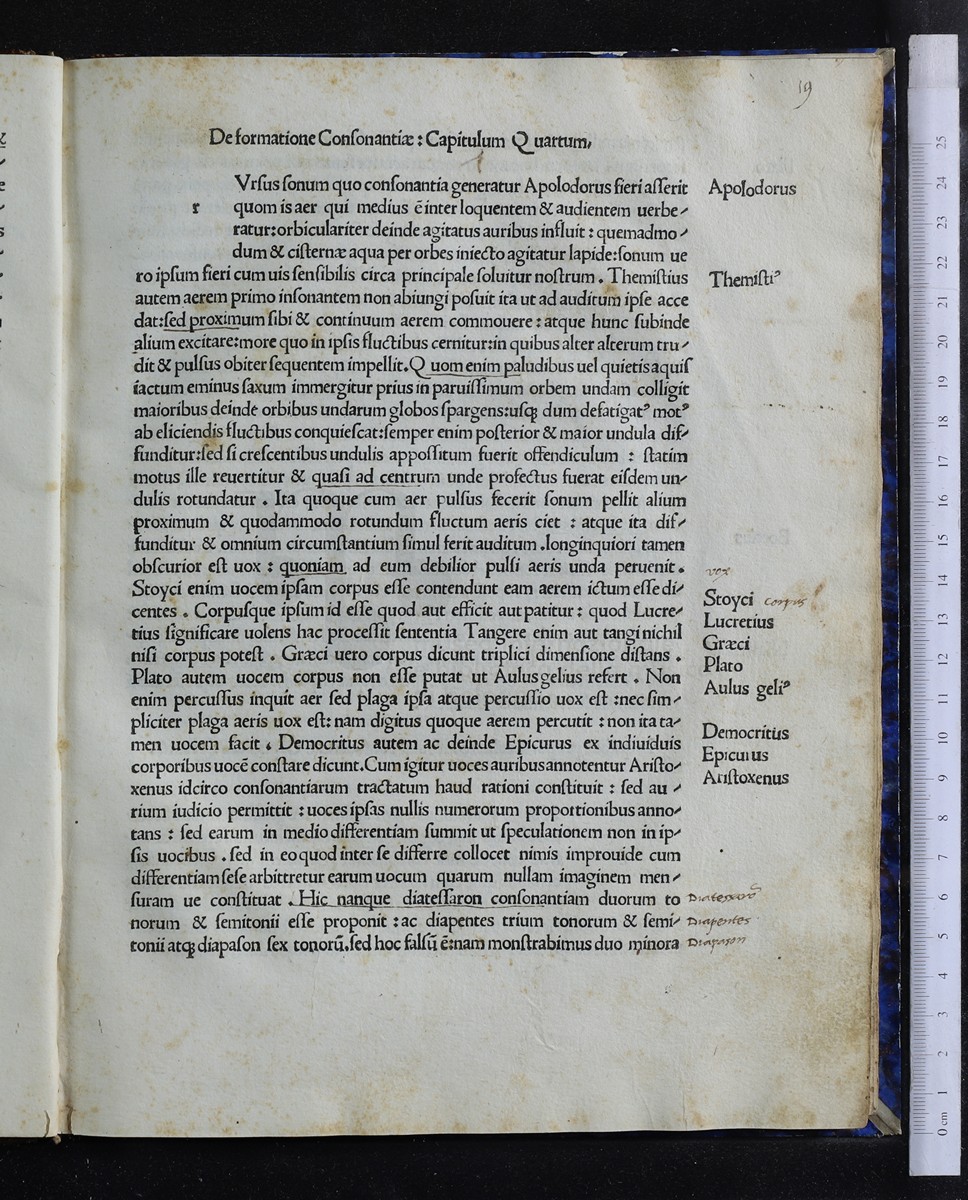 19
De formatione Conſonantiæ : Capitulum Q uartum,
Vrſus ſonum quo conſonantia generatur Apolodorus fieri aſſerit
Apolodorus
r quom is aer qui medius ē inter loquentem & audientem uerbe⸗
ratur:orbiculariter deinde agitatus auribus influit : quemadmo⸗
dum & ciſternæ aqua per orbes iniecto agitatur lapide:ſonum ue
ro ipſum fieri cum uis ſenſibilis circa principale ſoluitur noſtrum . Themiſtius
Themiſtiꝰ
autem aerem primo inſonantem non abiungi poſuit ita ut ad auditum ipſe acce
dat:ſed proximum ſibi & continuum aerem commouere : atque hunc ſubinde
alium excitare:more quo in ipſis fluctibus cernitur:in quibus alter alterum tru⸗
dit & pulſus obiter ſequentem impellit.Q uom enim paludibus uel quietis aquiſ
iactum eminus ſaxum immergitur prius in paruiſſimum orbem undam colligit
maioribus deinde orbibus undarum globos ſpargens:uſqꝫ dum defatigatꝰ motꝰ
ab eliciendis fluctibus conquieſcat:ſemper enim poſterior & maior undula dif⸗
funditur:ſed ſi creſcentibus undulis appoſſitum fuerit offendiculum : ſtatim
motus ille reuertitur & quaſi ad centrum unde profectus fuerat eiſdem un⸗
dulis rotundatur . Ita quoque cum aer pulſus fecerit ſonum pellit alium
proximum & quodammodo rotundum fluctum aeris ciet : atque ita dif⸗
funditur & omnium circumſtantium ſimul ferit auditum .longinquiori tamen
obſcurior eſt uox : quoniam ad eum debilior pulſi aeris unda peruenit.
vox
Stoyci enim uocem ipſam corpus eſſe contendunt eam aerem ictum eſſe di⸗
Stoyci corpus
centes . Corpuſque ipſum id eſſe quod aut efficit aut patitur : quod Lucre⸗
Lucretius
tius ſignificare uolens hac proceſſit ſententia Tangere enim aut tangi nichil
Græci
niſi corpus poteſt . Græci uero corpus dicunt triplici dimenſione diſtans .
Plato
Plato autem uocem corpus non eſſe putat ut Aulus gelius refert . Non
Aulus geliꝰ
enim percuſſus inquit aer ſed plaga ipſa atque percuſſio uox eſt :nec ſim⸗
pliciter plaga aeris uox eſt: nam digitus quoque aerem percutit : non ita ta⸗
Democritus
men uocem facit . Democritus autem ac deinde Epicurus ex indiuiduis
Epicurus
corporibus uocē conſtare dicunt.Cum igitur uoces auribus annotentur Ariſto⸗
Ariſtoxenus
xenus idcirco conſonantiarum tractatum haud rationi conſtituit : ſed au⸗
rium iudicio permittit : uoces ipſas nullis numerorum proportionibus anno⸗
tans : ſed earum in medio differentiam ſummit ut ſpeculationem non in ip⸗
ſis uocibus . ſed in eo quod inter ſe differre collocet nimis improuide cum
differentiam ſeſe arbittretur earum uocum quarum nullam imaginem men⸗
ſuram ue conſtituat . Hic nanque diateſſaron conſonantiam duorum to
Diatessarō
norum & ſemitonii eſſe proponit : ac diapentes trium tonorum & ſemi⸗
Diapentes
tonii atqꝫ diapaſon ſex tonorū.ſed hoc falſū ē:nam monſtrabimus duo minora
Diapason